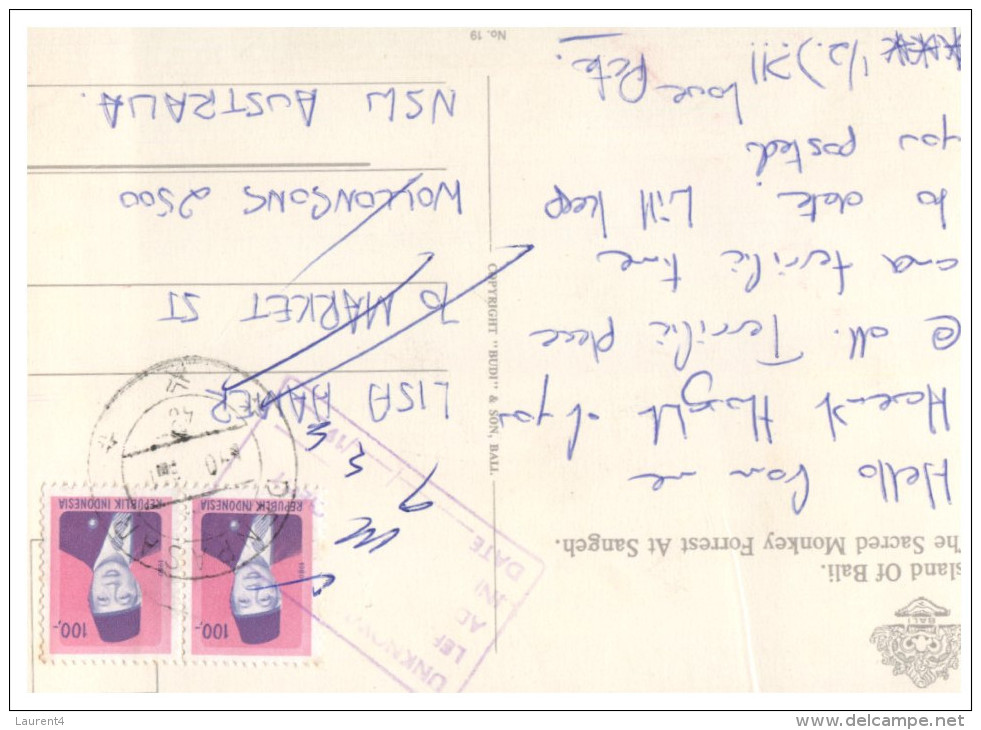 Island Of Bali.
The Sacred Monkey Forrest At Sangeh.
Hello from me
Haven't thought of you
@ all. Terrific place
and terrific time
to date. Will keep
you posted.
1/2.)?!!
love Pete.
COPYRIGHT "BUDI" & SON, BALI
No. 19
BALI
100,-
REPUBLIK INDONESIA
100,-
REPUBLIK INDONESIA
UNKNOWN
DATE
LISA
70 MARKET ST
WOLLONGONG 2500
NSW AUSTRALIA.
Laurent4
www.delcampe.net